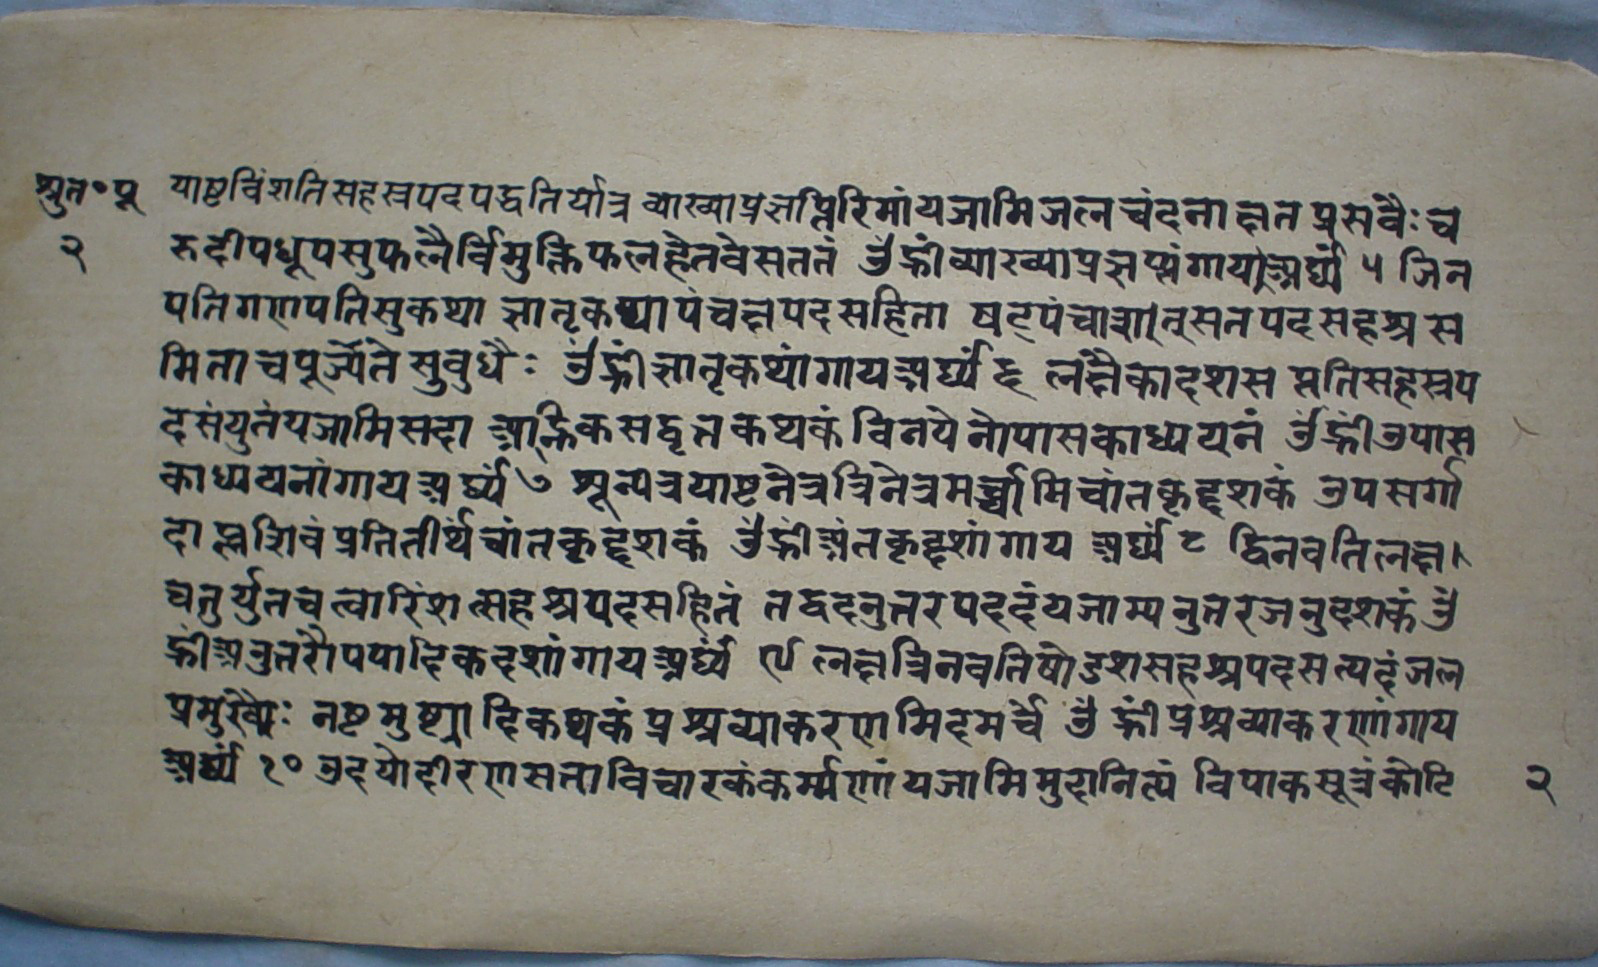 श्रुत॰पू याष्टविंशतिसहस्त्रपदपद्धतिर्यात्र व्याख्याप्रज्ञप्तिरिमांयजामिजलचंदनाक्षतप्रसवैः च
२ रुदीपधूपसुफलैर्विमुक्तिफलहेतवेसततं ॐह्रींव्याख्याप्रज्ञप्त्यंगायअर्घ्यं ५ जिन
पतिगणपतिसुकथा ज्ञातृकथापंचक्षपदसहिता षट्पंचाशत्सतपदसहश्रस
मिताचपूर्ज्येते सुवुधैः ॐह्रींज्ञातृकथांगायअर्घ्यं ६ लक्षैकादशस प्ततिसहस्त्रप
दसंयुतंयजामिसदा आह्निकसद्वृत्तकथकं विनयेनोपासकाध्ययनं ॐह्रींउपास
काध्ययनांगायअर्घ्यं ७ शून्यत्रयाष्टनेत्रत्रिनेत्रमर्च्चामिचांतकृद्दशकं उपसर्गा
दाप्तशिवंप्रतितीर्थंचांतकृद्दशकं ॐह्रींअंतकृद्दशांगाय अर्घ्यं ८ द्विनवतिलक्ष।
चतुर्युतचत्वारिंशत्सहश्रपदसहितं तद्वदनुत्तरपददंयजाम्यनुत्तरजनुदशकं ॐ
ह्रींअनुत्तरौपपादिकदशांगायअर्घ्यं ९ लक्षत्रिनवतिषोडशसहश्रपदसत्पदंजल
प्रमुख्यैः नष्टमुष्ट्यादिकथकं प्रश्नव्याकरणमिदमर्चे ॐह्रींप्रश्नव्याकरणांगाय
अर्घ्यं १० उदयोदीरणसत्ताविचारकंकर्म्मणांयजामिमुदानित्यं विपाकसूत्रंकोटि २